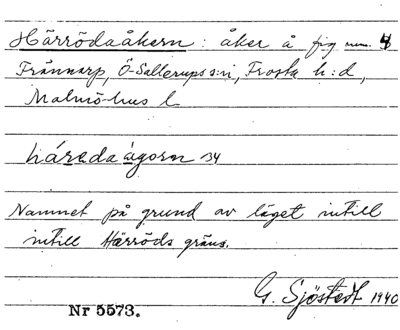 Härrödaåkern: åker å fig num. 4
Frännarp, Ö-Sallerups s:n, Frosta h:d,
Malmö-hus l
háredaågorn 34
Namnet på grund av läget intill
intill Härröds gräns.
G. Sjöstedt 1940
Nr 5573.